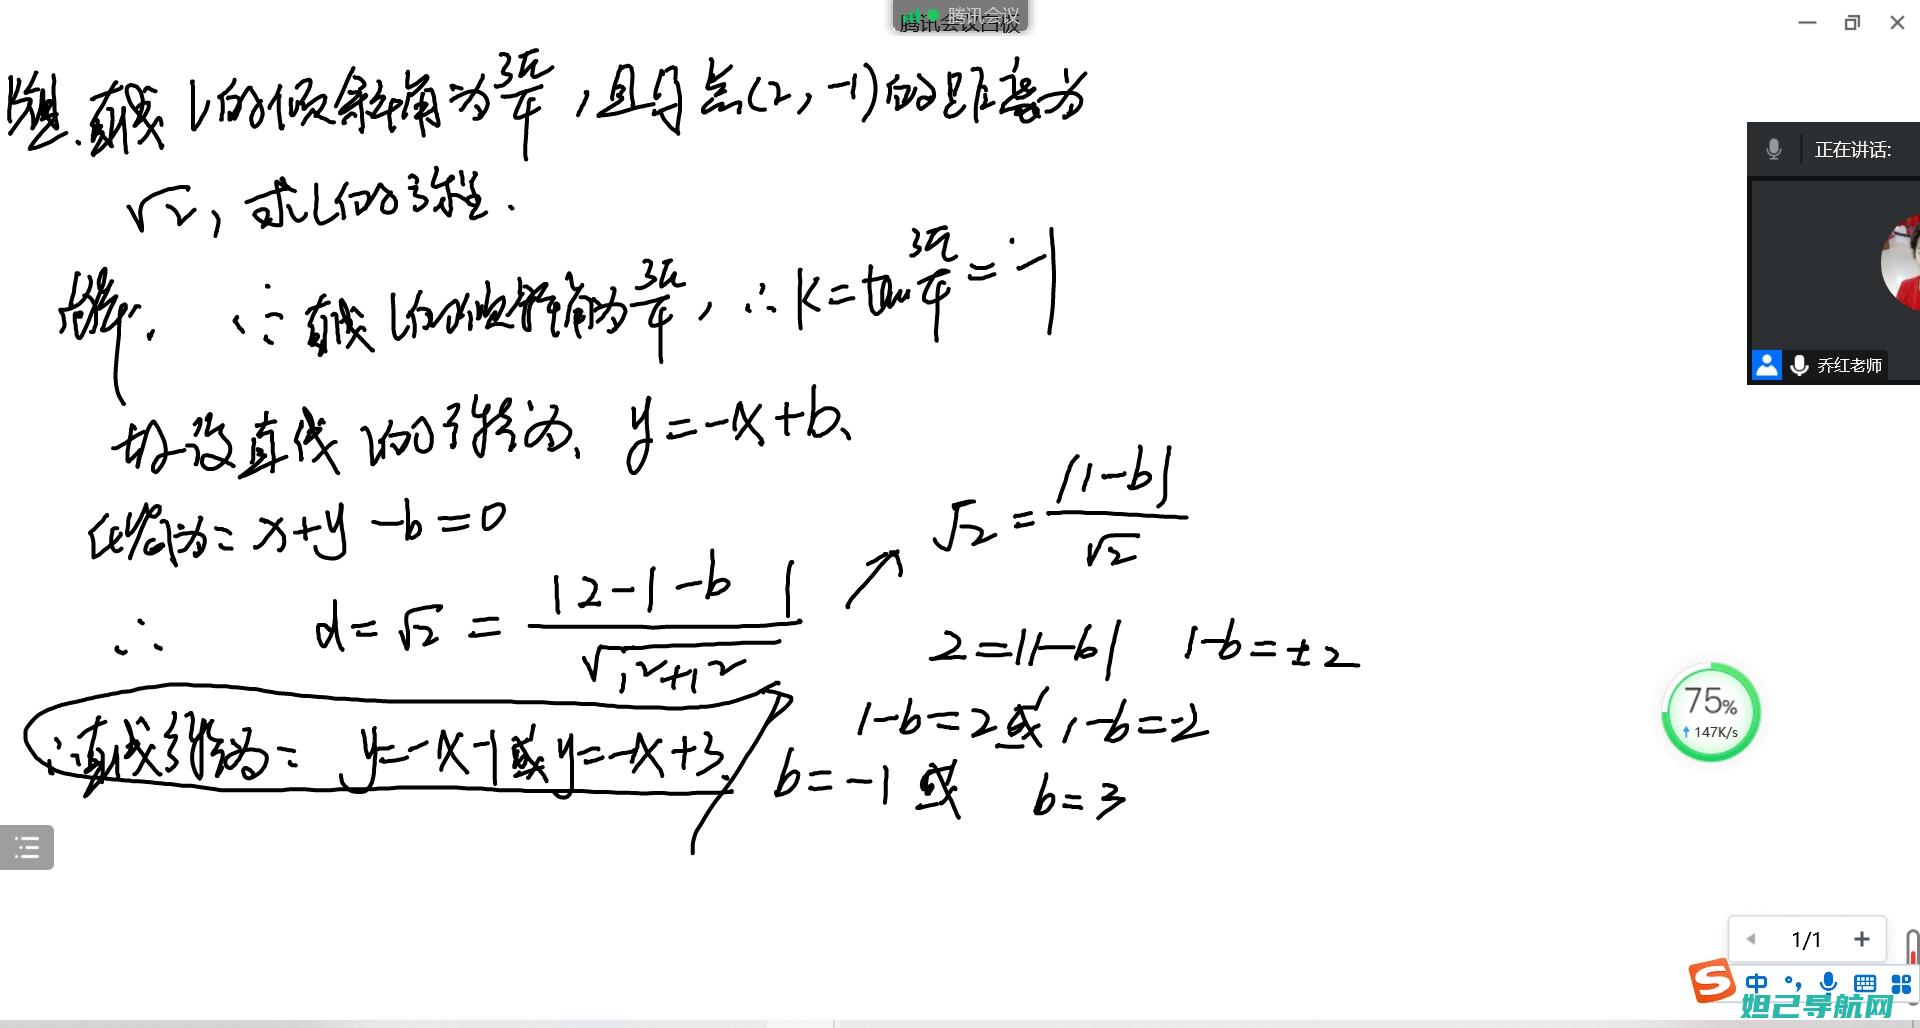 腾讯会议
腾讯会议白板
题.直线l的倾斜角为3π/4,且与点(2,-1)的距离为
√2,求l的方程.
解. ∵直线l的倾斜角为3π/4,∴k=tan3π/4=-1
故设直线l的方程为、y=-x+b、
化简为:x+y-b=0
∴ d=√2=|2-1-b|/√1²+1²
√2=|1-b|/√2
2=|1-b| 1-b=±2
1-b=2或1-b=-2
b=-1或 b=3
∴直线方程为:y=-x-1或y=-x+3.
正在讲话:
乔红老师
75%
147K/s
1/1
中
妲己导航网